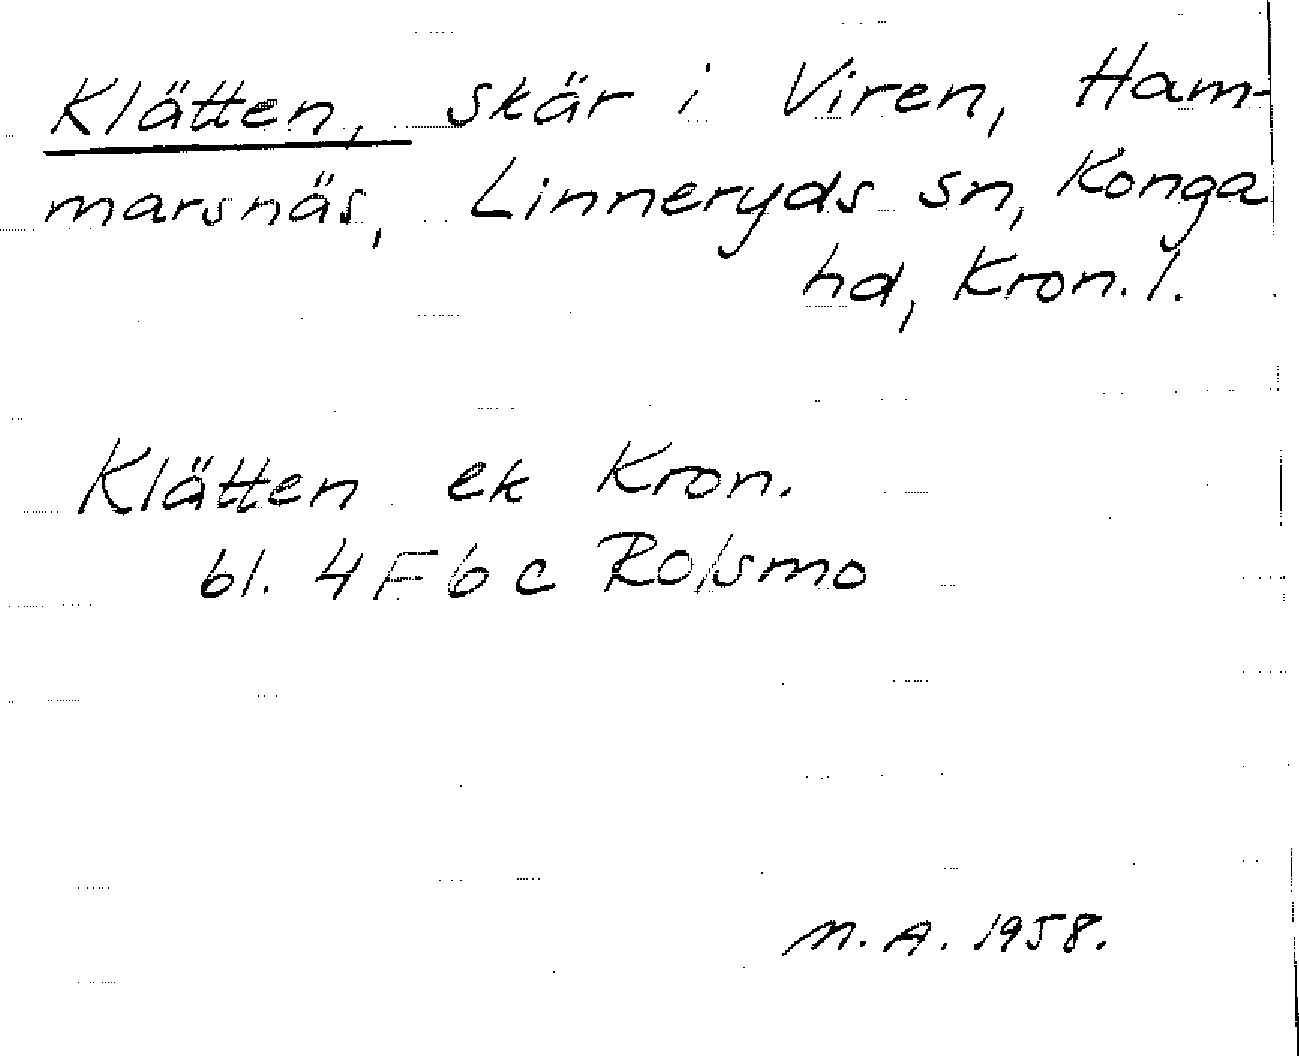 Klätten, skär i Viren, Ham-
marsnäs, Linneryds sn, Konga
hd, Kron. l.
Klätten ek Kron.
bl. 4F6c Rolsmo
N. A. 1958.